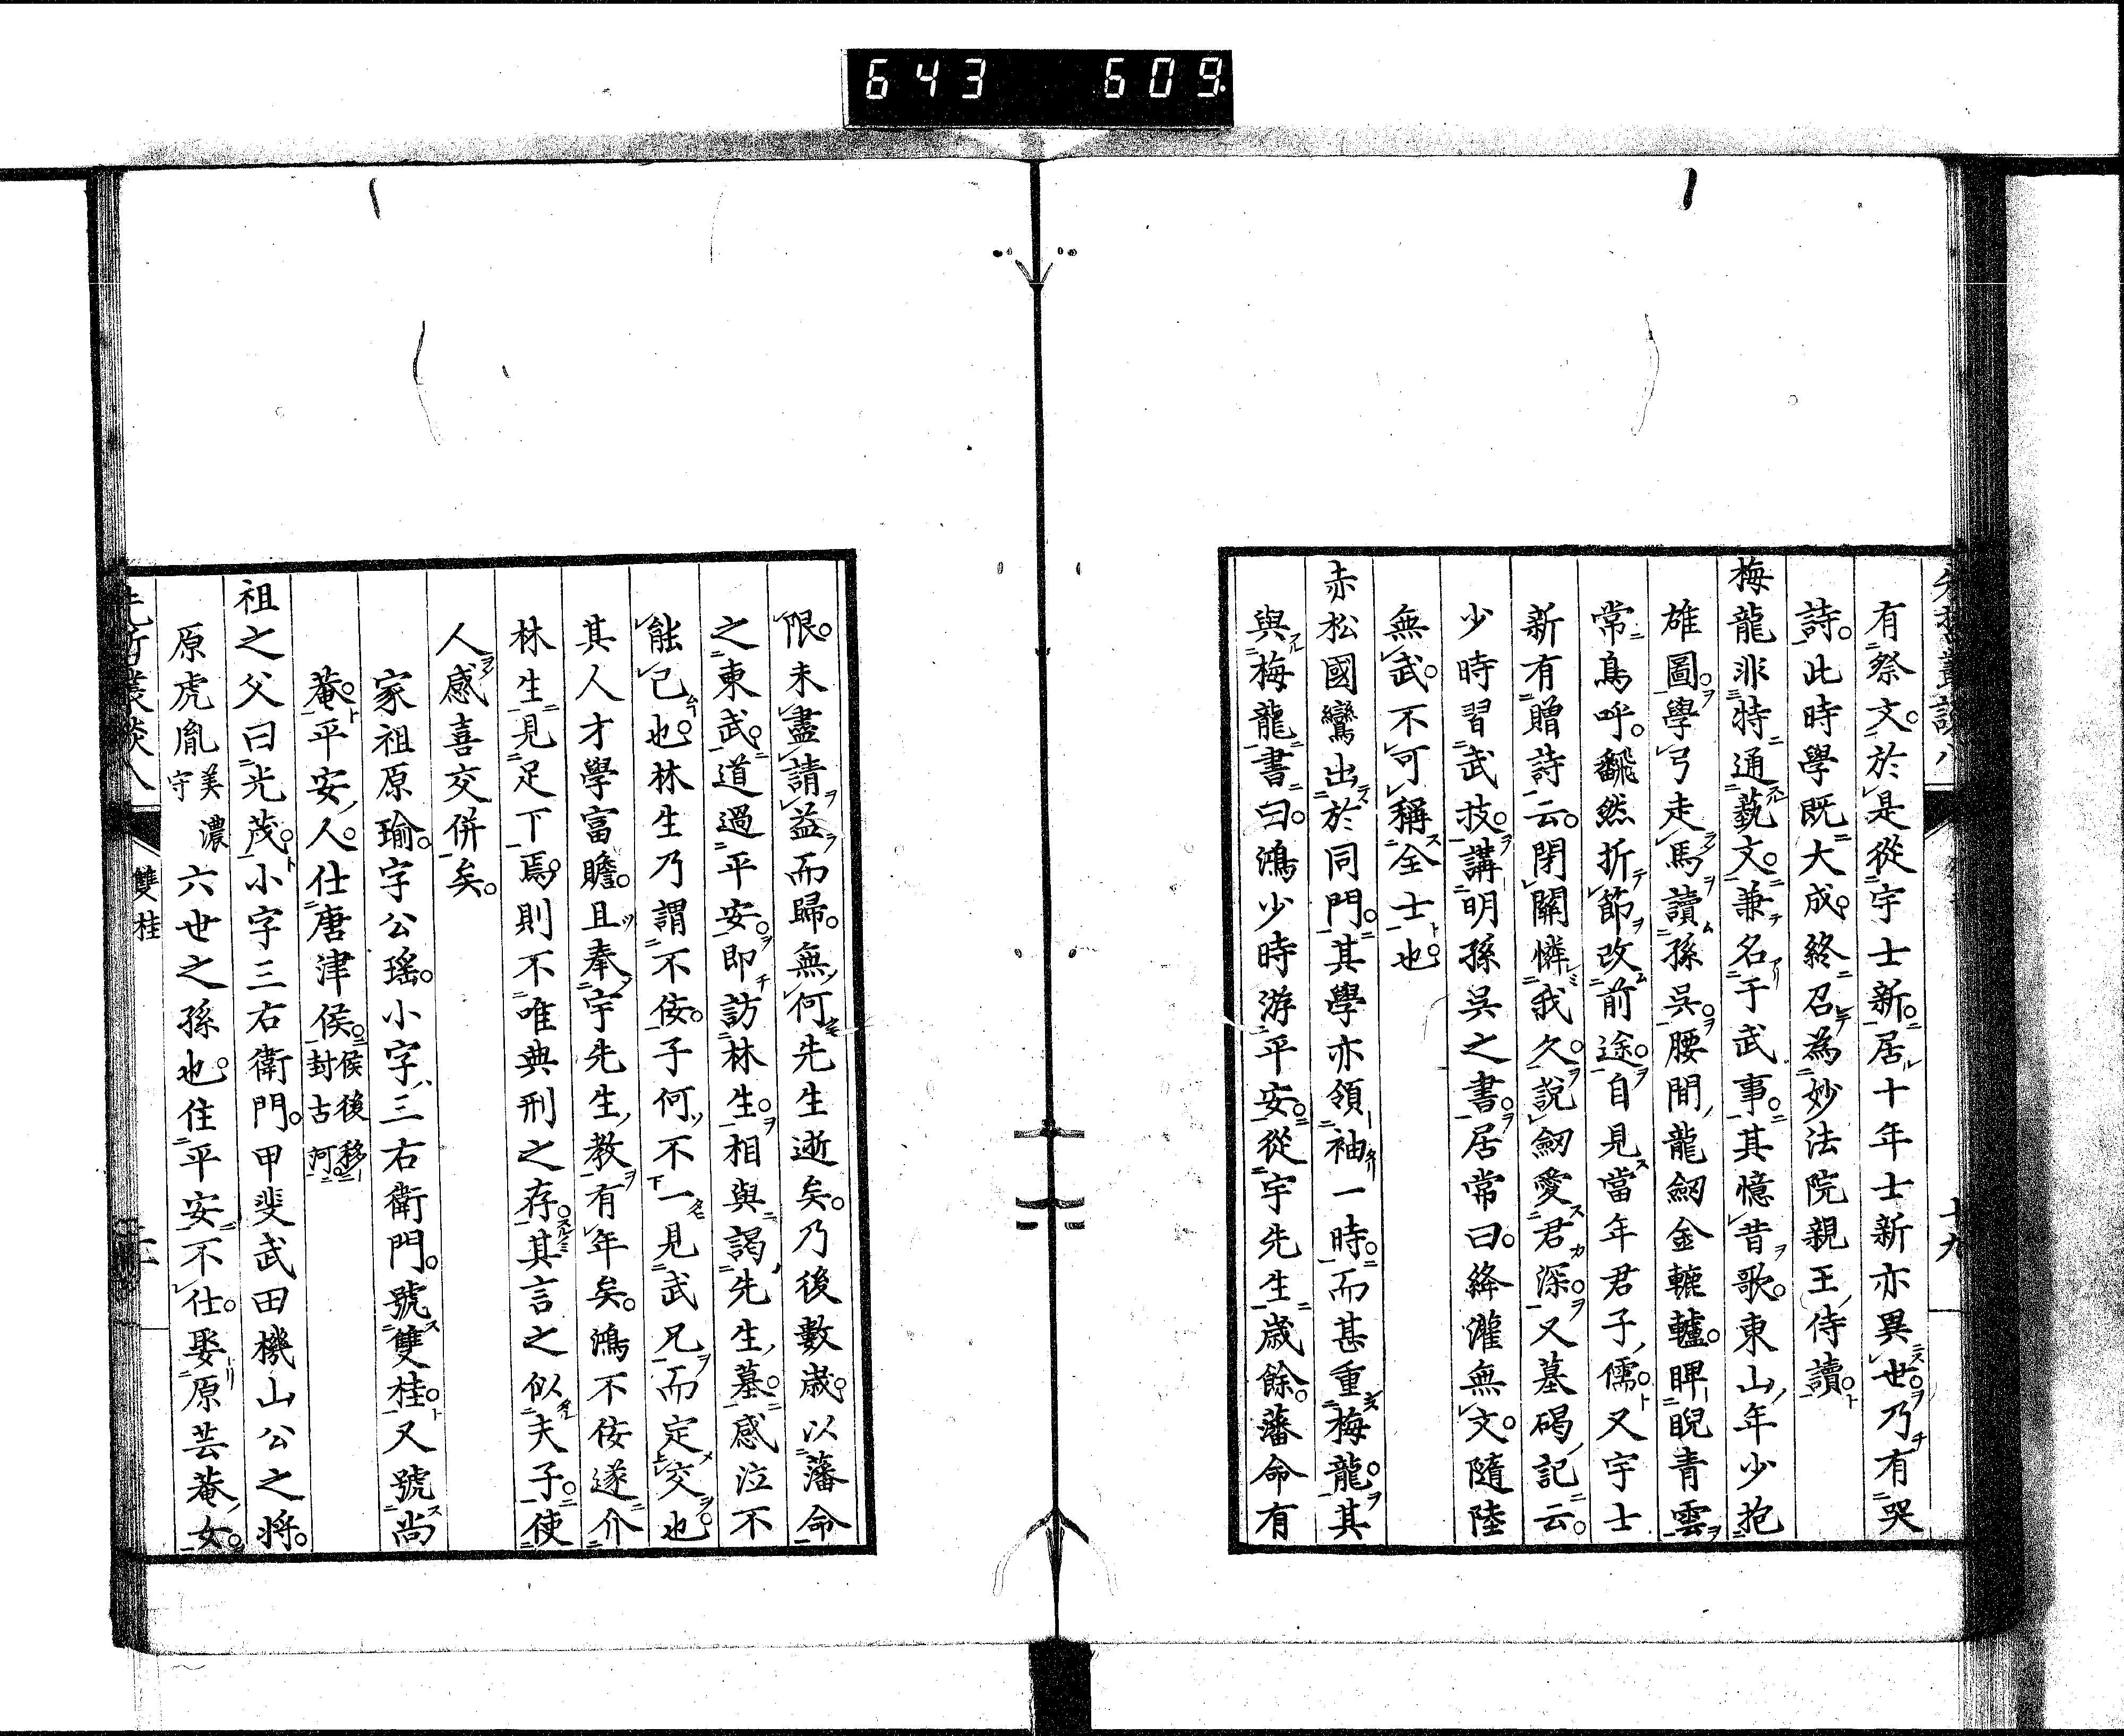 643 609
有祭文。於是從宇士新。居十年士新亦異世。乃有哭
詩。此時學既大成。終召為妙法院親王侍讀。
梅龍非特通藝文。兼名于武事。其憶昔歌。東山年少抱
雄圖。學弓走馬讀孫吳。腰間龍劒金轆轤。睥睨青雲
常鳥呼。飜然折節改前途。自見當年君子儒。又宇士
新有贈詩云。閉關憐我久。說劒愛君深。又墓碣記云。
少時習武技。講明孫吳之書。居常曰。絳灌無文。隨陸
無武。不可稱全士也。
赤松國鸞出於同門。其學亦領袖一時。而甚重梅龍。其
與梅龍書曰。鴻少時游平安。從宇先生歲餘。藩命有
限。未盡請益而歸。無何先生逝矣。乃後數歲。以藩命
之東武。道過平安。即訪林生。相與謁先生墓。感泣不
能已也。林生乃謂不佞。子何不一見武兄而定交也
其人才學富贍。且奉宇先生教有年矣。鴻不佞遂介
林生見足下焉。則不唯典刑之存。其言之似夫子。使
人感喜交併矣。
家祖原瑜。字公瑤。小字三右衛門。號雙桂。又號尚
菴。平安人。仕唐津侯。侯後移封古河。
祖之父曰光茂。小字三右衛門。甲斐武田機山公之將。
原虎胤美濃守六世之孫也。住平安。不仕。娶原芸菴女。
雙桂